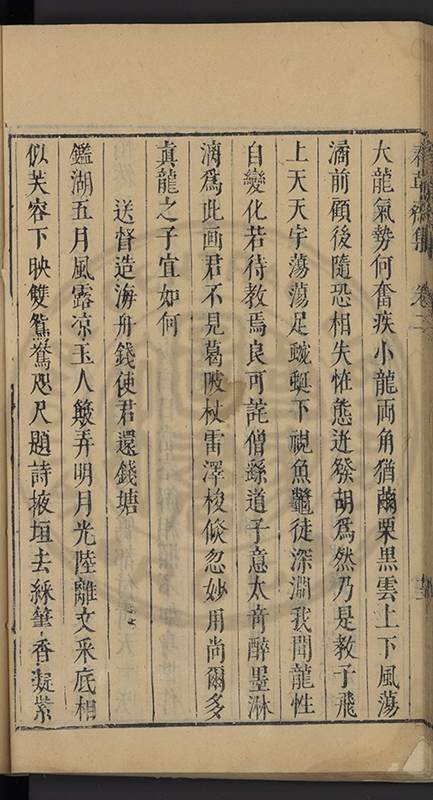 春草齋集 卷二
大龍氣勢何奮疾小龍両角猶繭栗黒雲上下風蕩
潏前顧後隨恐相失恠態迸發胡爲然乃是教子飛
上天天宇蕩蕩足蜿蜒下視魚鼈徒深淵我聞龍性
自變化若待教焉良可詫僧繇道子意太竒醉墨淋
漓爲此画君不見葛陂杖雷澤梭倐忽妙用尚爾多
真龍之子宜如何
送督造海舟錢使君還錢塘
鑑湖五月風露凉玉人簸弄明月光陸離文采底相
似芙容下映雙鴛鴦咫尺題詩掖垣去綵筆香凝紫